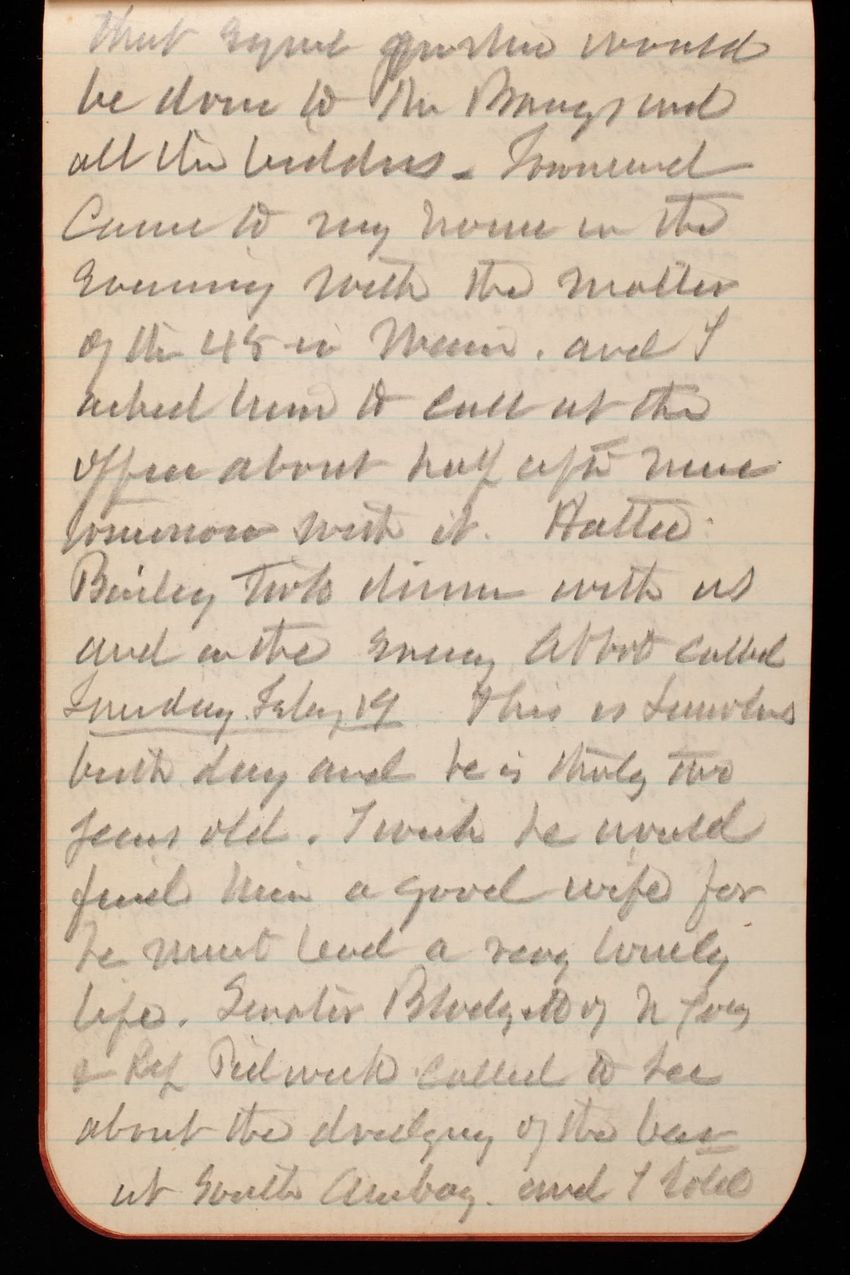 that equal justice would
be done to the Brougs and
all the bidders. Townsend
Came to my house in the
Evening with the matter
of the 45 in Main. and I
asked him to call at the
office about half after nine
tomorrow with it. Hattie
Bailey took dinner with us
and in the Evening Abbot called
Tuesday Feby 19 This is Lincolns
birth day and he is thirty two
years old. I wish he would
find him a good wife for
he must lead a very lonely
life. Senator Blodgett of N Jersey
& Rep Pidcock called to see
about the dredging of the bar
at South Amboy. and I told